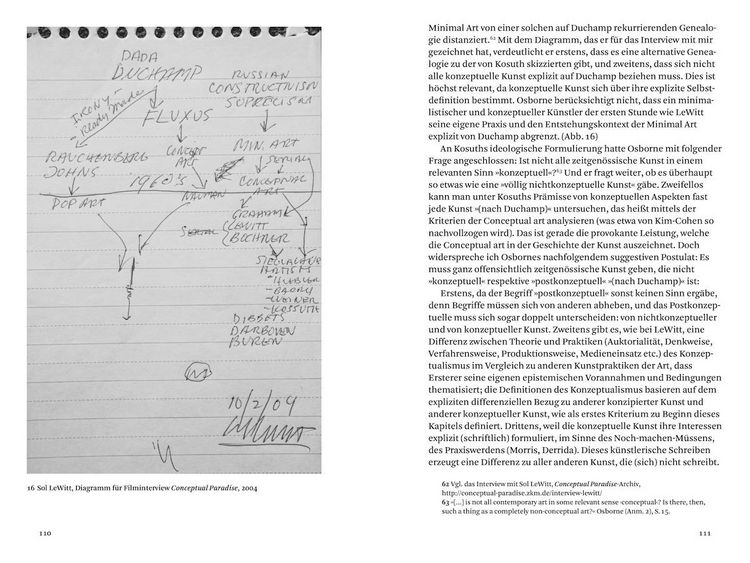 DADA
DUCHAMP
RUSSIAN
CONSTRUCTIVISM
SUPRECISM
IRONY -
Ready made
FLUXUS
RAUCHENBERG
JOHNS
CONCEPT
ART
MIN. ART
SERIAL
1960's
CONCEPTUAL
ART
POP ART
NAUMAN
GRAHAM
LEWITT
BOCHNER
SERIAL
SIEGLAUB
ARTISTS
- HUEBLER
- BARRY
- WEINER
- KOSSUTH
DIBBETS
DARBOVEN
BUREN
10/2/04
16 Sol LeWitt, Diagramm für Filminterview Conceptual Paradise, 2004
110
Minimal Art von einer solchen auf Duchamp rekurrierenden Genealo-
gie distanziert.62 Mit dem Diagramm, das er für das Interview mit mir
gezeichnet hat, verdeutlicht er erstens, dass es eine alternative Genea-
logie zu der von Kosuth skizzierten gibt, und zweitens, dass sich nicht
alle konzeptuelle Kunst explizit auf Duchamp beziehen muss. Dies ist
höchst relevant, da konzeptuelle Kunst sich über ihre explizite Selbst-
definition bestimmt. Osborne berücksichtigt nicht, dass ein minima-
listischer und konzeptueller Künstler der ersten Stunde wie LeWitt
seine eigene Praxis und den Entstehungskontext der Minimal Art
explizit von Duchamp abgrenzt. (Abb. 16)
An Kosuths ideologische Formulierung hatte Osborne mit folgender
Frage angeschlossen: Ist nicht alle zeitgenössische Kunst in einem
relevanten Sinn »konzeptuell«?63 Und er fragt weiter, ob es überhaupt
so etwas wie eine »völlig nichtkonzeptuelle Kunst« gäbe. Zweifellos
kann man unter Kosuths Prämisse von konzeptuellen Aspekten fast
jede Kunst »(nach Duchamp)« untersuchen, das heißt mittels der
Kriterien der Conceptual art analysieren (was etwa von Kim-Cohen so
nachvollzogen wird). Das ist gerade die provokante Leistung, welche
die Conceptual art in der Geschichte der Kunst auszeichnet. Doch
widerspreche ich Osbornes nachfolgendem suggestiven Postulat: Es
muss ganz offensichtlich zeitgenössische Kunst geben, die nicht
»konzeptuell« respektive »postkonzeptuell« »(nach Duchamp)« ist:
Erstens, da der Begriff »postkonzeptuell« sonst keinen Sinn ergäbe,
denn Begriffe müssen sich von anderen abheben, und das Postkonzep-
tuelle muss sich sogar doppelt unterscheiden: von nichtkonzeptueller
und von konzeptueller Kunst. Zweitens gibt es, wie bei LeWitt, eine
Differenz zwischen Theorie und Praktiken (Auktorialität, Denkweise,
Verfahrensweise, Produktionsweise, Medieneinsatz etc.) des Konzep-
tualismus im Vergleich zu anderen Kunstpraktiken der Art, dass
Ersterer seine eigenen epistemischen Vorannahmen und Bedingungen
thematisiert; die Definitionen des Konzeptualismus basieren auf dem
expliziten differenziellen Bezug zu anderer konzipierter Kunst und
anderer konzeptueller Kunst, wie als erstes Kriterium zu Beginn dieses
Kapitels definiert. Drittens, weil die konzeptuelle Kunst ihre Interessen
explizit (schriftlich) formuliert, im Sinne des Noch-machen-Müssens,
des Praxiswerdens (Morris, Derrida). Dieses künstlerische Schreiben
erzeugt eine Differenz zu aller anderen Kunst, die (sich) nicht schreibt.
62 Vgl. das Interview mit Sol LeWitt, Conceptual Paradise-Archiv,
http://conceptual-paradise.zkm.de/interview-lewitt/
63 »[…] is not all contemporary art in some relevant sense ›conceptual‹? Is there, then,
such a thing as a completely non-conceptual art?« Osborne (Anm. 2), S. 15.
111